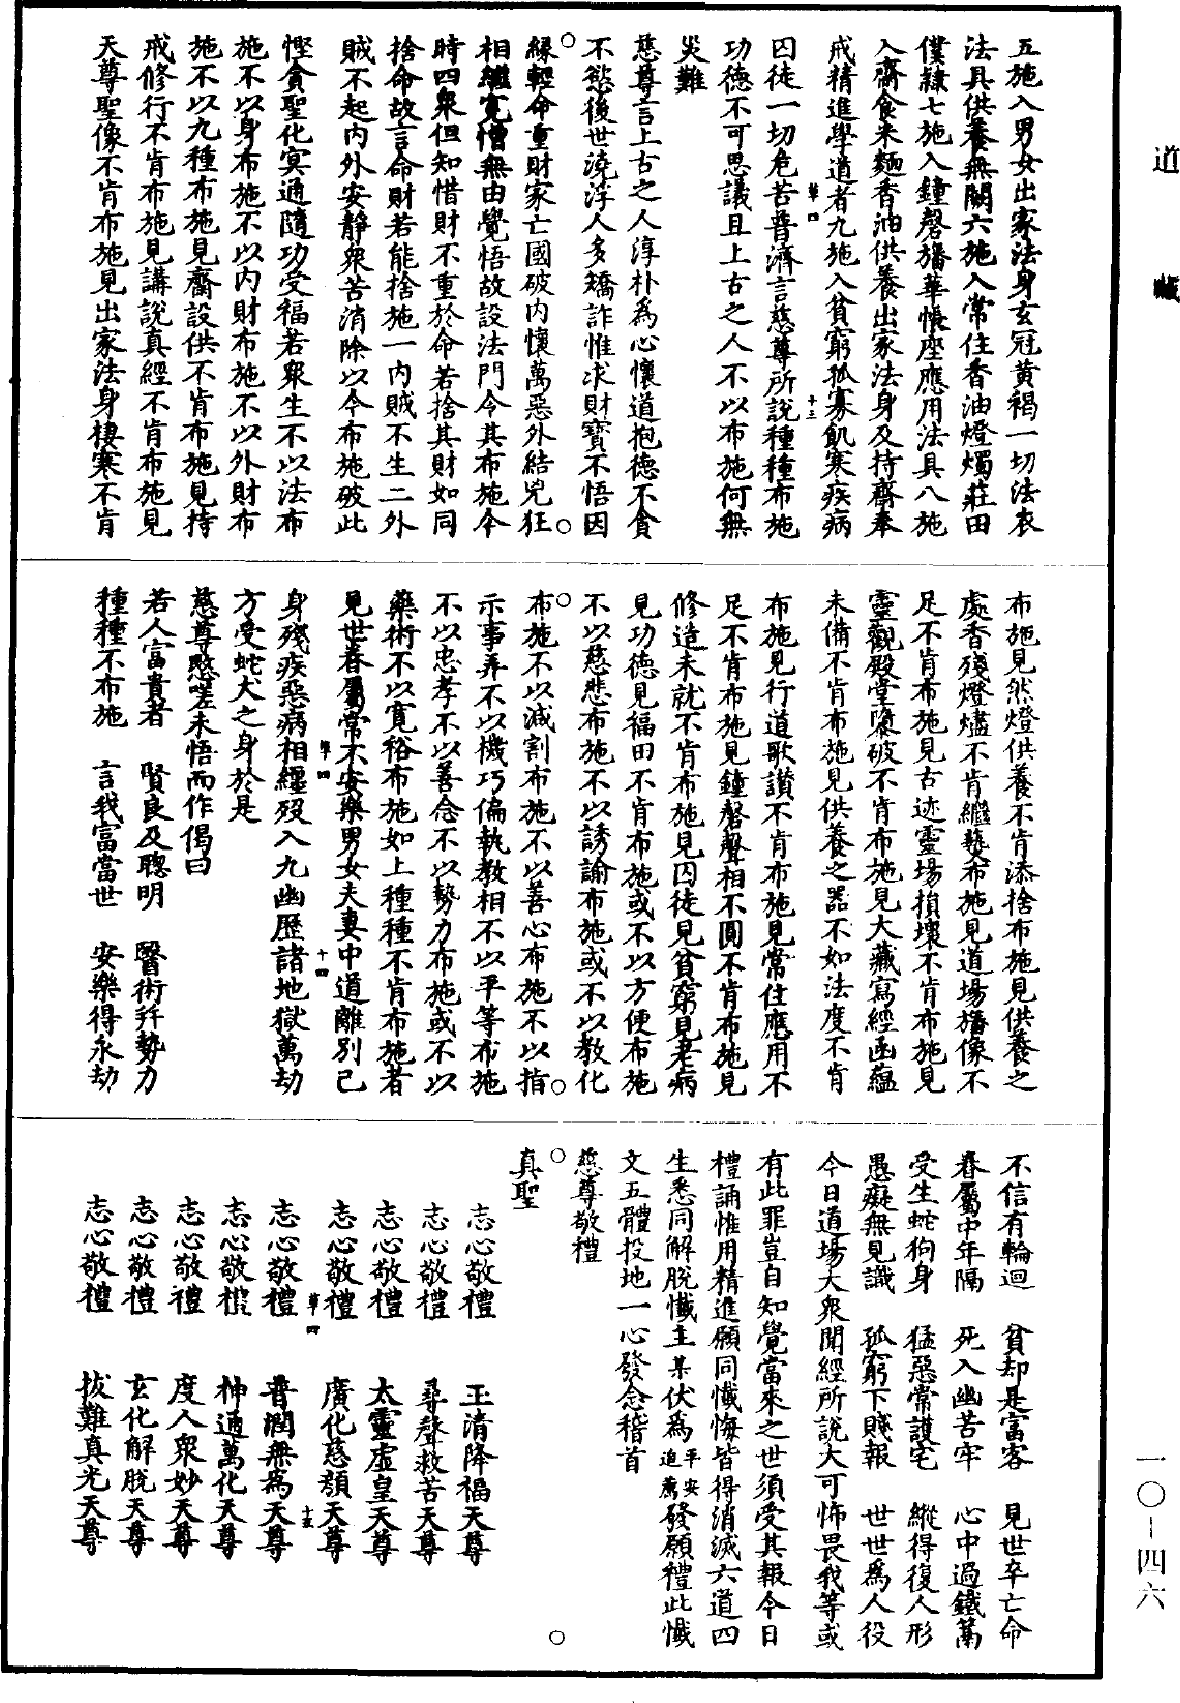 道藏
五施入男女出家法身玄冠黄褐一切法衣
法具供養無闕六施入常住香油燈燭莊田
僕隸七施入鐘磬旛華帳座應用法具八施
入齋食米麵香油供養出家法身及持齋奉
戒精進學道者九施入貧窮孤寡飢寒疾病
草四
十三
囚徒一切危苦普濟言慈尊所說種種布施
功德不可思議且上古之人不以布施何無
災難
慈尊言上古之人淳朴爲心懷道抱德不貪
不慾後世澆浮人多矯詐惟求財寶不悟因
緣輕命重財家亡國破内懷萬惡外結兇狂
相繼寃憎無由覺悟故設法門令其布施今
時四衆但知惜財不重於命若捨其財如同
捨命故言命財若能捨施一内賊不生二外
賊不起内外安靜衆苦消除以今布施破此
慳貪聖化冥通隨功受福若衆生不以法布
施不以身布施不以内財布施不以外財布
施不以九種布施見齋設供不肯布施見持
戒修行不肯布施見講說真經不肯布施見
天尊聖像不肯布施見出家法身棲寒不肯
布施見然燈供養不肯添捨布施見供養之
處香殘燈燼不肯繼發布施見道場旛像不
足不肯布施見古迹靈場損壞不肯布施見
靈觀殿堂隳破不肯布施見大藏寫經函蘊
未備不肯布施見供養之器不如法度不肯
布施見行道歌讃不肯布施見常住應用不
足不肯布施見鐘磬聲相不圓不肯布施見
修造未就不肯布施見囚徒見貧窮見老病
見功德見福田不肯布施或不以方便布施
不以慈悲布施不以誘諭布施或不以教化
布施不以減割布施不以善心布施不以指
示事弄不以機巧偏執教相不以平等布施
不以忠孝不以善念不以勢力布施或不以
藥術不以寬裕布施如上種種不肯布施者
見世眷屬常不安樂男女夫妻中道離别己
草四
十四
身殘疾惡病相纏歿入九幽歷諸地獄萬劫
方受蛇犬之身於是
慈尊愍嗟未悟而作偈曰
若人富貴者　賢良及聰明　醫術幷勢力
種種不布施　言我富當世　安樂得永劫
不信有輪迴　貧却是富客　見世卒亡命
眷屬中年隔　死入幽苦牢　心中過鐵萬
受生蛇狗身　猛惡常護宅　縱得復人形
愚癡無見識　孤窮下賤報　世世爲人役
今日道場大衆聞經所說大可怖畏我等或
有此罪豈自知覺當來之世須受其報今日
禮誦惟用精進願同懺悔皆得消滅六道四
生悉同解脫懺主某伏爲平安追薦發願禮此懺
文五體投地一心發念稽首
慈尊敬禮
真聖
志心敬禮　玉清降福天尊
志心敬禮　尋聲救苦天尊
志心敬禮　太靈虛皇天尊
志心敬禮　廣化慈顏天尊
草四
十五
志心敬禮　普潤無爲天尊
志心敬禮　神通萬化天尊
志心敬禮　度人衆妙天尊
志心敬禮　玄化解脫天尊
志心敬禮　拔難真光天尊
一〇—四六